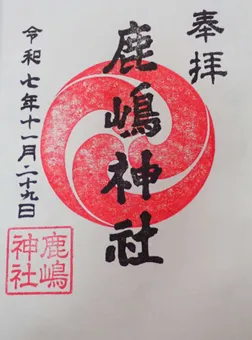 奉拝
鹿嶋神社
令和七年十一月二十九日
鹿嶋
神社